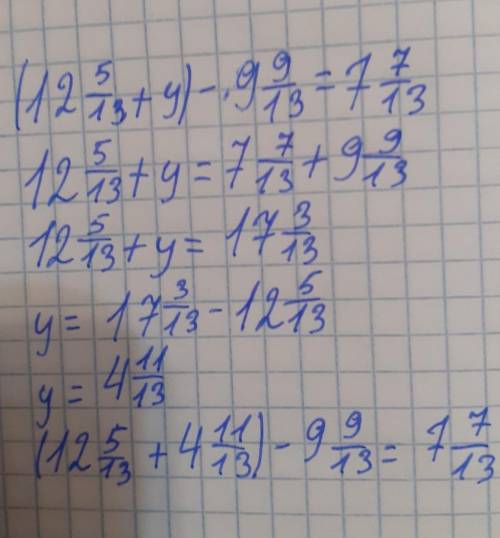 (12 5/13 + y) - 9 9/13 = 7 7/13
12 5/13 + y = 7 7/13 + 9 9/13
12 5/13 + y = 17 3/13
y = 17 3/13 - 12 5/13
y = 4 11/13
(12 5/13 + 4 11/13) - 9 9/13 = 7 7/13